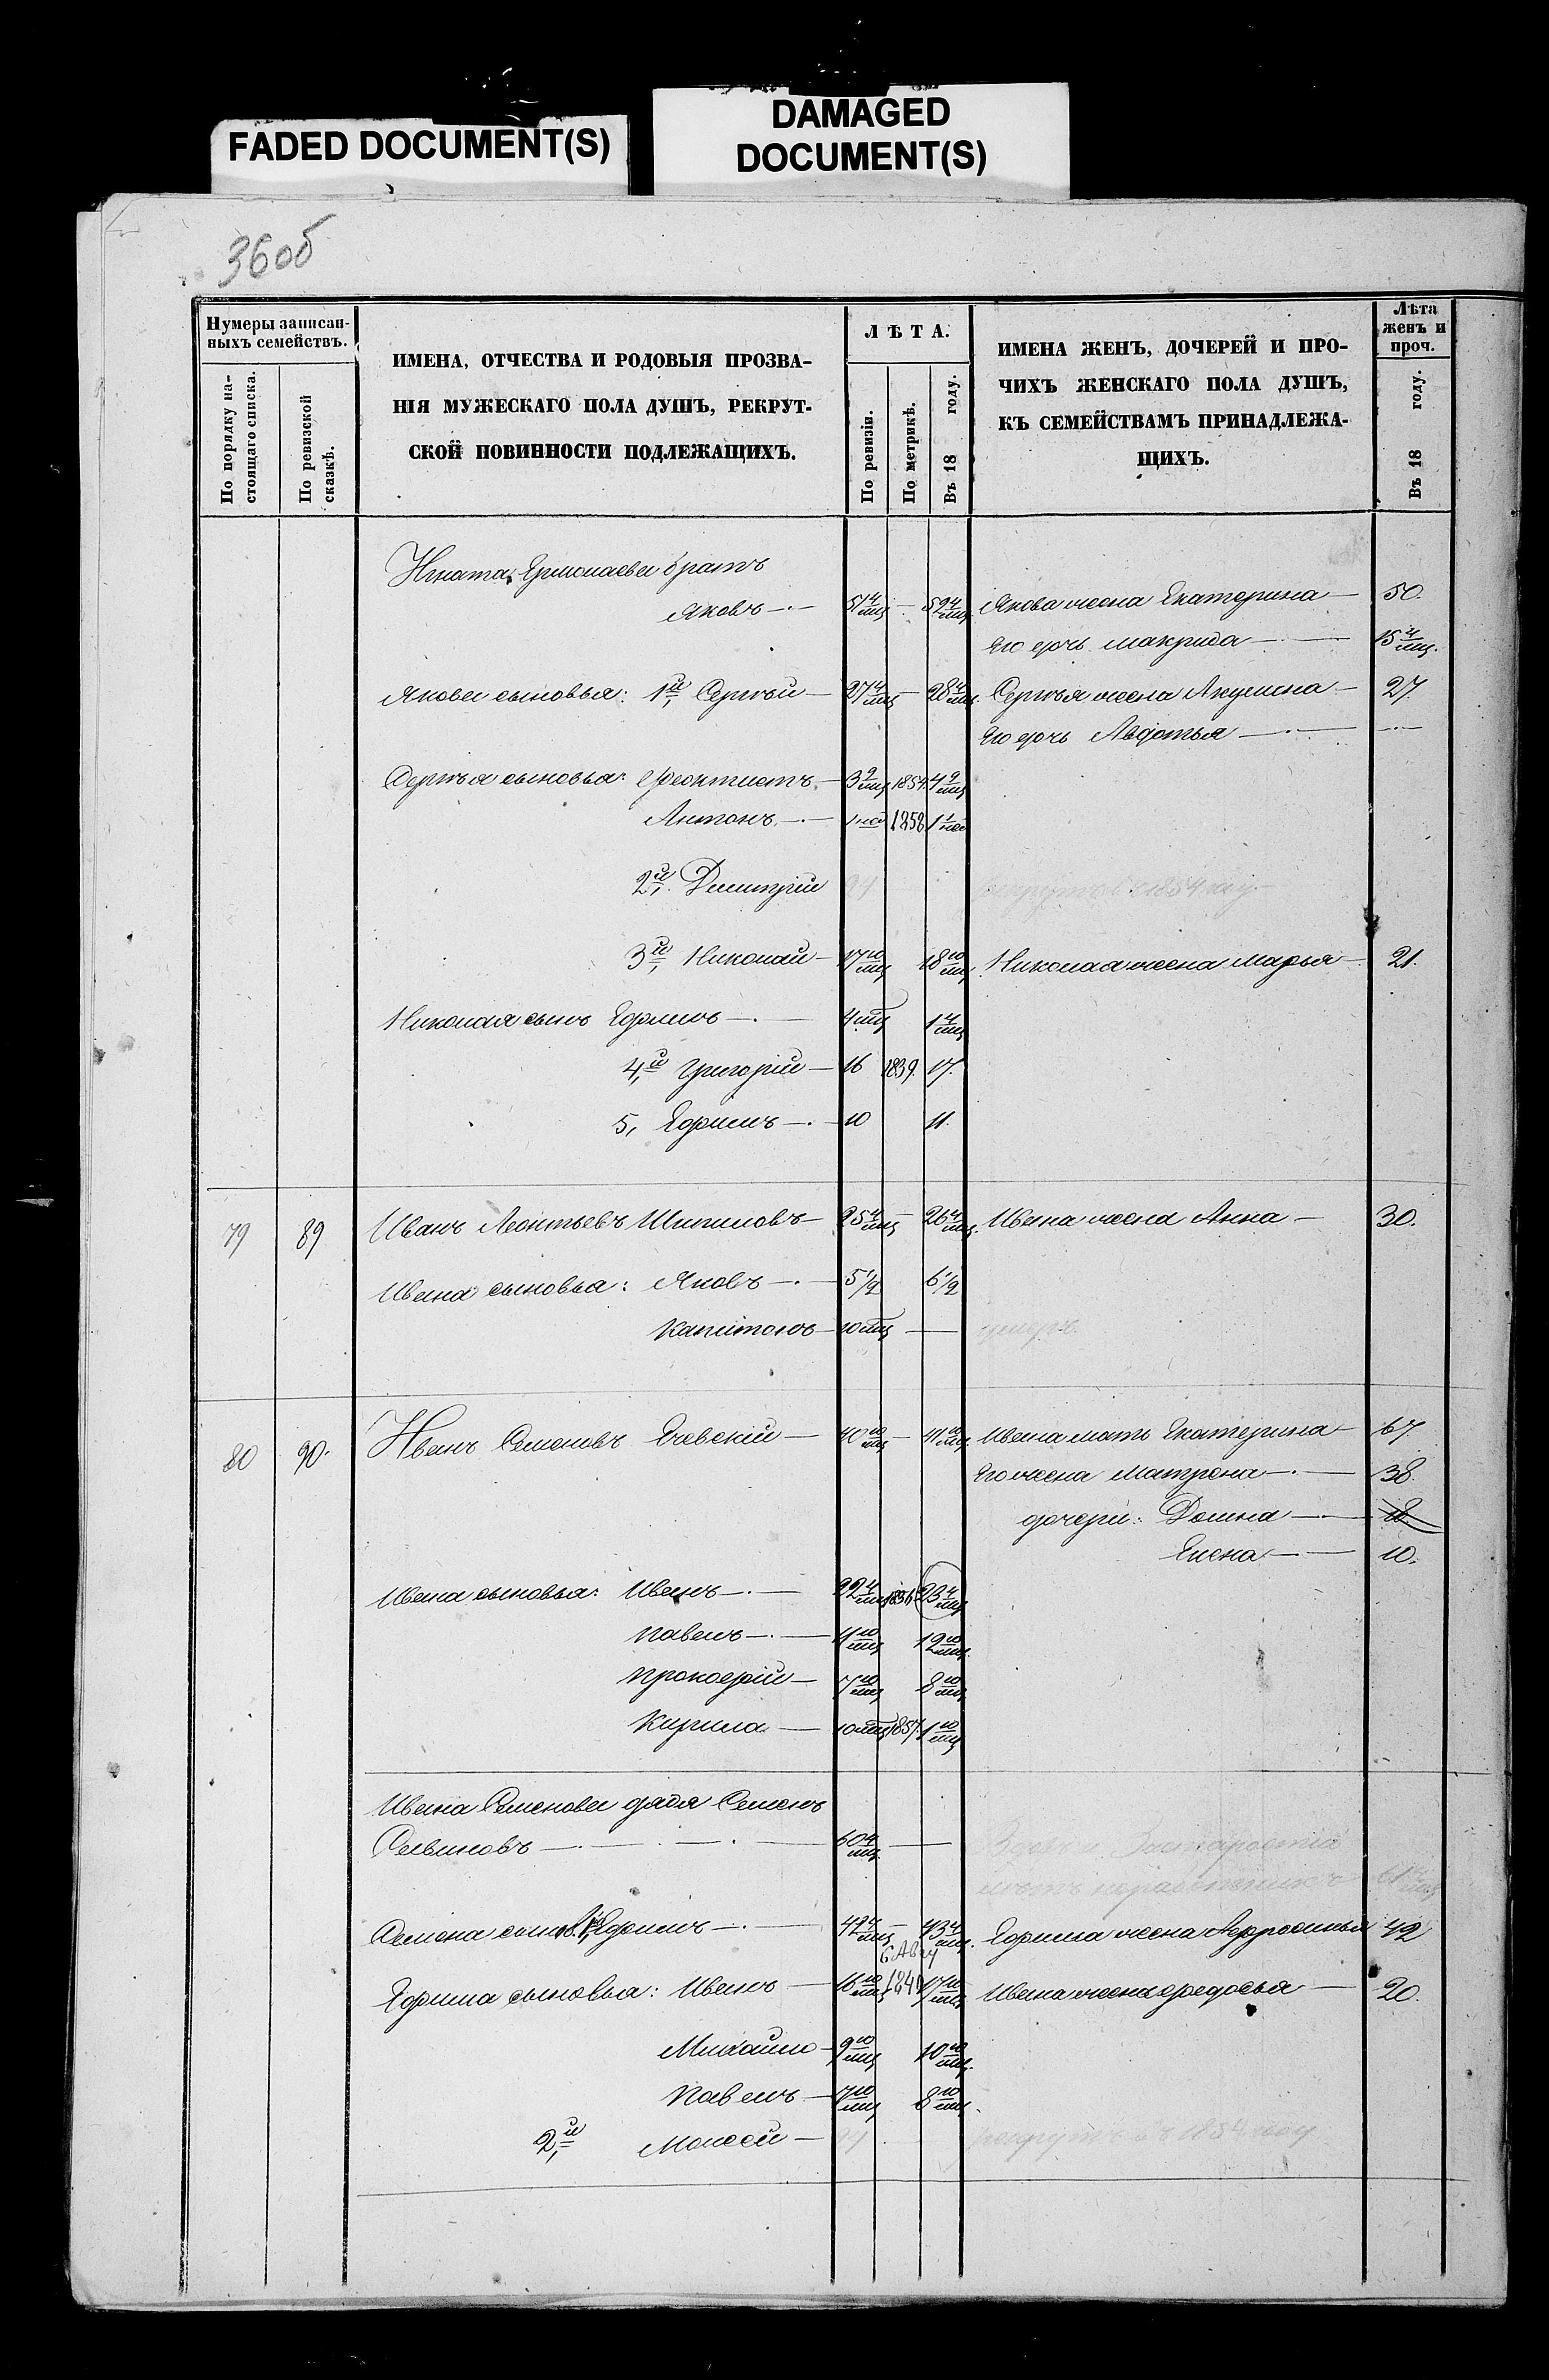 FADED DOCUMENT(S)
DAMAGED
DOCUMENT(S)
36об
Нумеры записан-
ныхъ семействъ.
По порядку на-
стоящаго списка.
По ревизской
сказкѣ.
ИМЕНА, ОТЧЕСТВА И РОДОВЫЯ ПРОЗВА-
НІЯ МУЖЕСКАГО ПОЛА ДУШЪ, РЕКРУТ-
СКОЙ ПОВИННОСТИ ПОДЛЕЖАЩИХЪ.
ЛѢТА.
По ревизіи.
По метрикѣ.
Въ 18 году.
ИМЕНА ЖЕНЪ, ДОЧЕРЕЙ И ПРО-
ЧИХЪ ЖЕНСКАГО ПОЛА ДУШЪ,
КЪ СЕМЕЙСТВАМЪ ПРИНАДЛЕЖА-
ЩИХЪ.
Лѣта
женъ и
проч.
Въ 18 году.
Игната Ермолаева братъ
Яковъ — 51 4/мц — 52 4/мц Якова жена Екатерина — 50.
Его дочь Макрида — 15 4/мц.
Якова сыновья: 1й, Сергѣй — 27 4/мц — 28 4/мц. Сергѣя жена Акулина — 27.
Его дочь Авдотья —
Сергѣя сыновья: Феоктистъ — 3 9/мц 1854. 4 9/мц
Антонъ — 1 нед 1858 1 1/нед
2й, Дмитрій 24 рекрутъ въ 1854 году
3й, Николай — 17 10/мц 18 10/мц, Николая жена Марья — 21.
Николая сынъ Ефимъ — 4 мц 1 4/мц
4,й Григорій — 16 1839. 17.
5, Ефимъ — 10 11.
79 89 Иванъ Леонтьевъ Шипиловъ — 25 4/мц — 26 4/мц. Ивана жена Анна — 30.
Ивана сыновья: Яковъ — 5 1/2 6 1/2
Капитонъ — 10 мц — умеръ.
80 90. Иванъ Семеновъ — 40 10/мц — 41 10/мц. Ивана мать Екатерина — 67.
Его жена Матрена — 38.
дочери: Домна — 18.
Елена — 10.
Ивана сыновья: Иванъ — 22 4/мц 1836 23 4/мц
Павелъ — 11 10/мц 12 10/мц.
Прокофій — 7 10/мц 8 10/мц
Кирила — 10 мц 1857. 1 10/мц
Ивана Семенова дядя Семенъ
Сельиновъ — 60 4/мц —
61 4/мц
Семена сынъ 1й, Ефимъ — 42 4/мц — 43 4/мц. Ефима жена Афросинья 42
6 Авг
Ефима сыновья: Иванъ — 16 10/мц 1840 17 10/мц Ивана жена Федосья — 20.
Михайло — 9 10/мц 10 10/мц.
Павелъ — 7 10/мц 8 10/мц.
2,й Моисей — 21 рекрутъ въ 1854 году